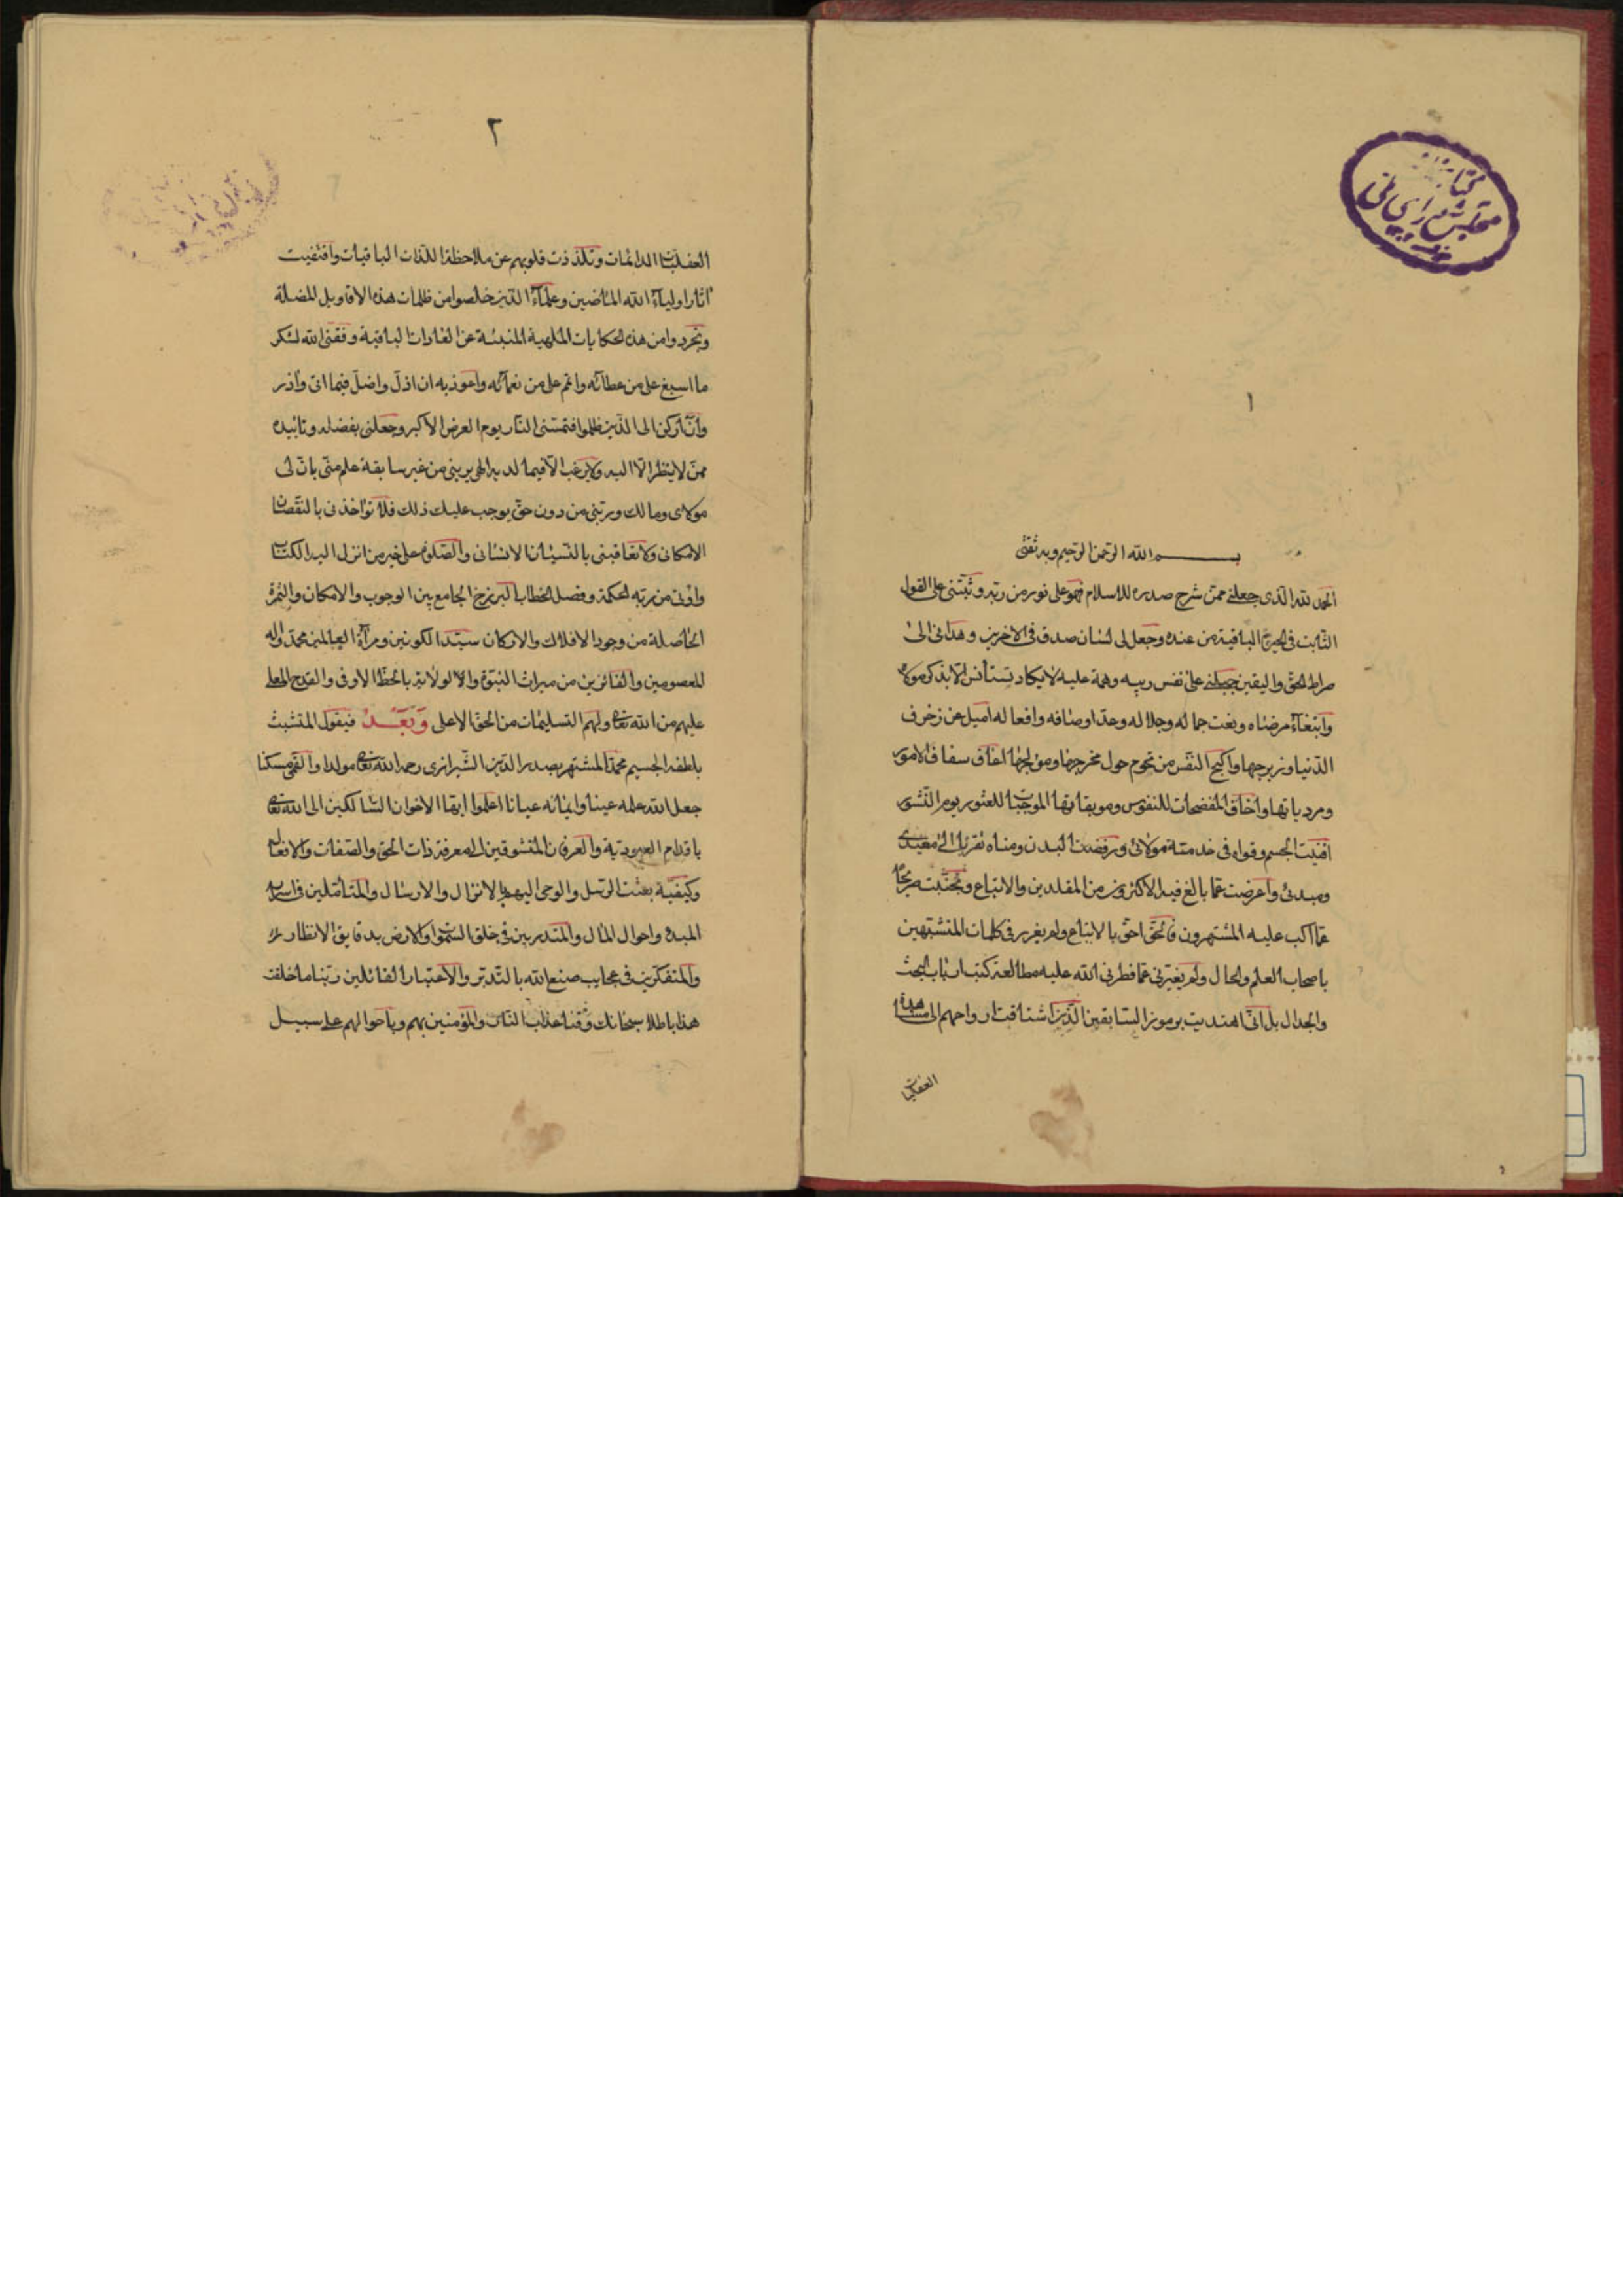 ١
بسم الله الرحمن الرحيم وبه ثقتى
الحمد لله الذى جعلنى ممن شرح صدره للاسلام فهو على نور من ربه وثبتنى على القول
الثابت فى الحيوة الباقية من عنده وجعل لى لسان صدق فى الاخرين وهدانى الى
صراط الحق واليقين جبلنى على نفس ربيه وهمة عليه لا يكاد تستأنس الا بذكر مولاه
وابتغاء مرضاه ونعت جماله وجلاله وعد اوصافه وافعاله اميل عن زخرف
الدنيا وزبرجها واكبح النفس من تحوم حول مخرجها ومولجها اعاف سفاف الامور
ومردياتها واخاف المفضحات للنفوس وموبقاتها الموجبات للعثور يوم النشور
افنيت الجسم وقواه فى خدمته مولائى ورفضت البدن ومناه تقربا الى معيدى
ومبدئى واعرضت عما بالغ فيه الاكثرون من المقلدين والاتباع وتجنبت
عما اكب عليه المشتهرون فالحق احق بالاتباع ولم يغررنى كلمات المتشبهين
باصحاب العلم والحال ولم يغيرنى عما فطرنى الله عليه مطالعة كتب ارباب البحث
والجدال بل انى اهتديت برموز السابقين الذين اشتاقت ارواحهم الى مشاهدة
العقليات
٢
العقليات الدائمات وتلذذت قلوبهم عن ملاحظة اللذات الباقيات واقتفيت
اثار اولياء الله الماضين وعلماء الذين خلصوا من ظلمات هذه الاقاويل المضلة
وتجردوا من هذه الحكايات الملهية المنبئة عن الغارات الباقية وفقنى الله لشكر
ما اسبغ على من عطائه وانعم على من نعمائه واعوذ به ان اذل واضل فيما اتى واذر
وان اركن الى الذين ظلموا فتمسنى النار يوم العرض الاكبر وجعلنى بفضله وتائيده
ممن لا ينظر الا اليه ولا يرغب الا فيما لديه الهى يربنى من غير سابقة علم منى بان لى
مولاى ومالك وربتنى من دون حق يوجب عليك ذلك فلا تؤاخذنى بالنقصان
الامكانى ولا تعاقبنى بالنسيان الانسانى والصلوة على خير من انزل اليه الكتاب
واوتى من ربه الحكمة وفصل الخطاب البرزخ الجامع بين الوجوب والامكان والثمرة
الحاصلة من وجود الافلاك والاركان سيد الكونين ومرآة العالمين محمد واله
المعصومين والفائزين من ميراث النبوة والولاية بالحظ الاوفى والقدح المعلى
عليهم من الله تعالى ولهم التسليمات من الحق الاعلى وَبَعْدُ فيقول المتشبث
بلطفه الجسيم محمد المشتهر بصدر الدين الشيرازى رحمه الله تعالى مولدا والقمى مسكنا
جعل الله علمه عينا وايمانه عيانا اعلموا ايها الاخوان السالكين الى الله تعالى
باقدام العبودية والعرفان المتشوقين الى معرفة ذات الحق والصفات والافعال
وكيفية بعثت الرسل والوحى اليهم بالانزال والارسال والمتأملين فى اسرار
المبدء واحوال المال والمتدبرين فى خلق السموات والارض بدقايق الانظار
والمتفكرين فى عجايب صنع الله بالتدبر والاعتبار القائلين ربنا ما خلقت
هذا باطلا سبحانك وقنا عذاب النار والمؤمنين بهم وباحوالهم على سبيل